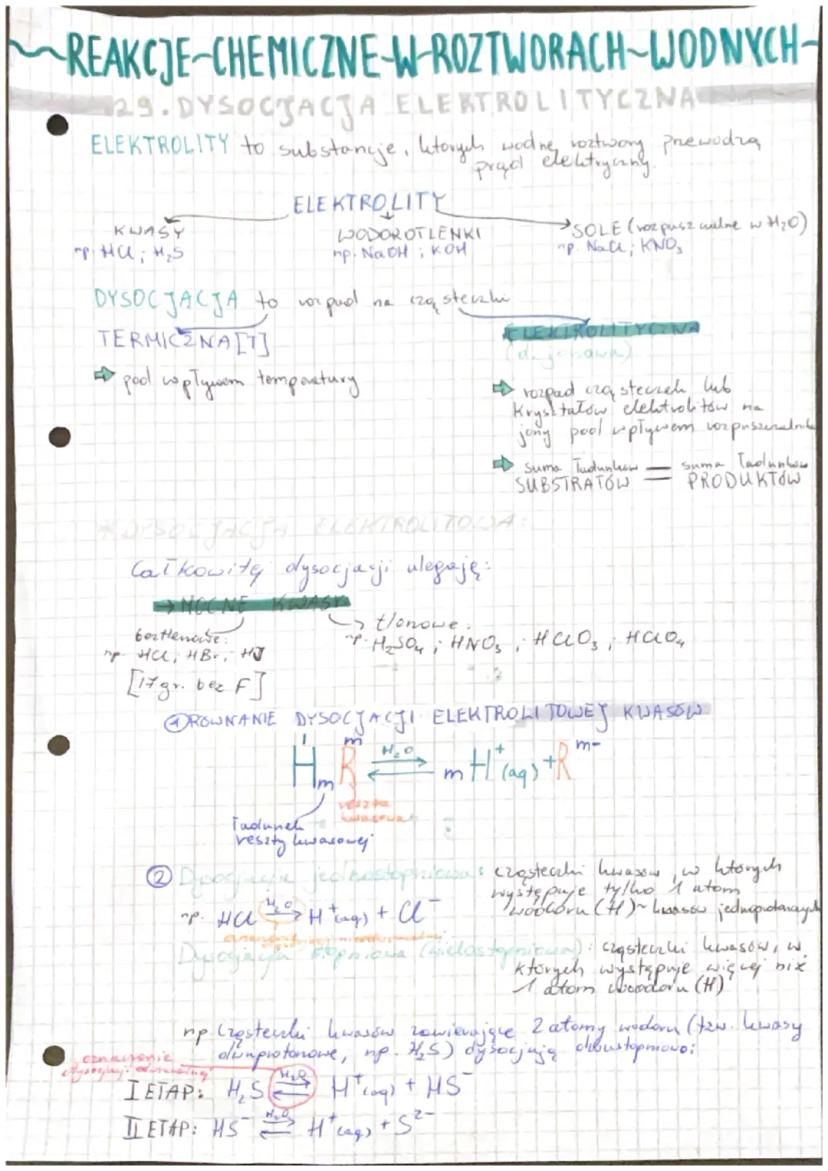 REAKCJE~CHEMICZNE~W~ROZTWORACH~WODNYCH
29. DYSOCJACJA ELEKTROLITYCZNA
ELEKTROLITY to substancje, których wodne roztwory przewodzą
prąd elektryczny.
ELEKTROLITY
KWASY
np. HCl; H₂S
WODOROTLENKI
np. NaOH; KOH
SOLE (rozpuszczalne w H₂O)
np. NaCl; KNO₃
DYSOCJACJA to rozpad na cząsteczki
TERMICZNA [T]
⇒ pod wpływem temperatury
ELEKTROLITYCZNA
(d. jonowa)
⇒ rozpad cząsteczek lub
kryształów elektrolitów na
jony pod wpływem rozpuszczalnika
⇒ suma ładunków SUBSTRATÓW = suma ładunków PRODUKTÓW
*DYSOCJACJA ELEKTROLITOWA:
Całkowitej dysocjacji ulegają:
→ MOCNE KWASY
beztlenowe:
np. HCl; HBr; HJ
[17gr. bez F]
→ tlenowe:
np. H₂SO₄; HNO₃; HClO₃; HClO₄
① RÓWNANIE DYSOCJACJI ELEKTROLITOWEJ KWASÓW
HₘR ⇌ (H₂O) m H⁺(aq) + Rᵐ⁻
reszta
kwasowa
ładunek
reszty kwasowej
② Dysocjacja jednostopniowa: cząsteczki kwasów, w których
występuje tylko 1 atom
wodoru (H) ~ kwasów jednoprotonowych
np. HCl →(H₂O) H⁺(aq) + Cl⁻
Dysocjacja stopniowa (wielostopniowa): cząsteczki kwasów, w
których występuje więcej niż
1 atom wodoru (H)
np cząsteczki kwasów zawierające 2 atomy wodoru (tzw. kwasy
dwuprotonowe, np. H₂S) dysocjują dwustopniowo:
oznaczenie
I ETAP: H₂S ⇌ (H₂O) H⁺(aq) + HS⁻
II ETAP: HS⁻ ⇌ (H₂O) H⁺(aq) + S²⁻